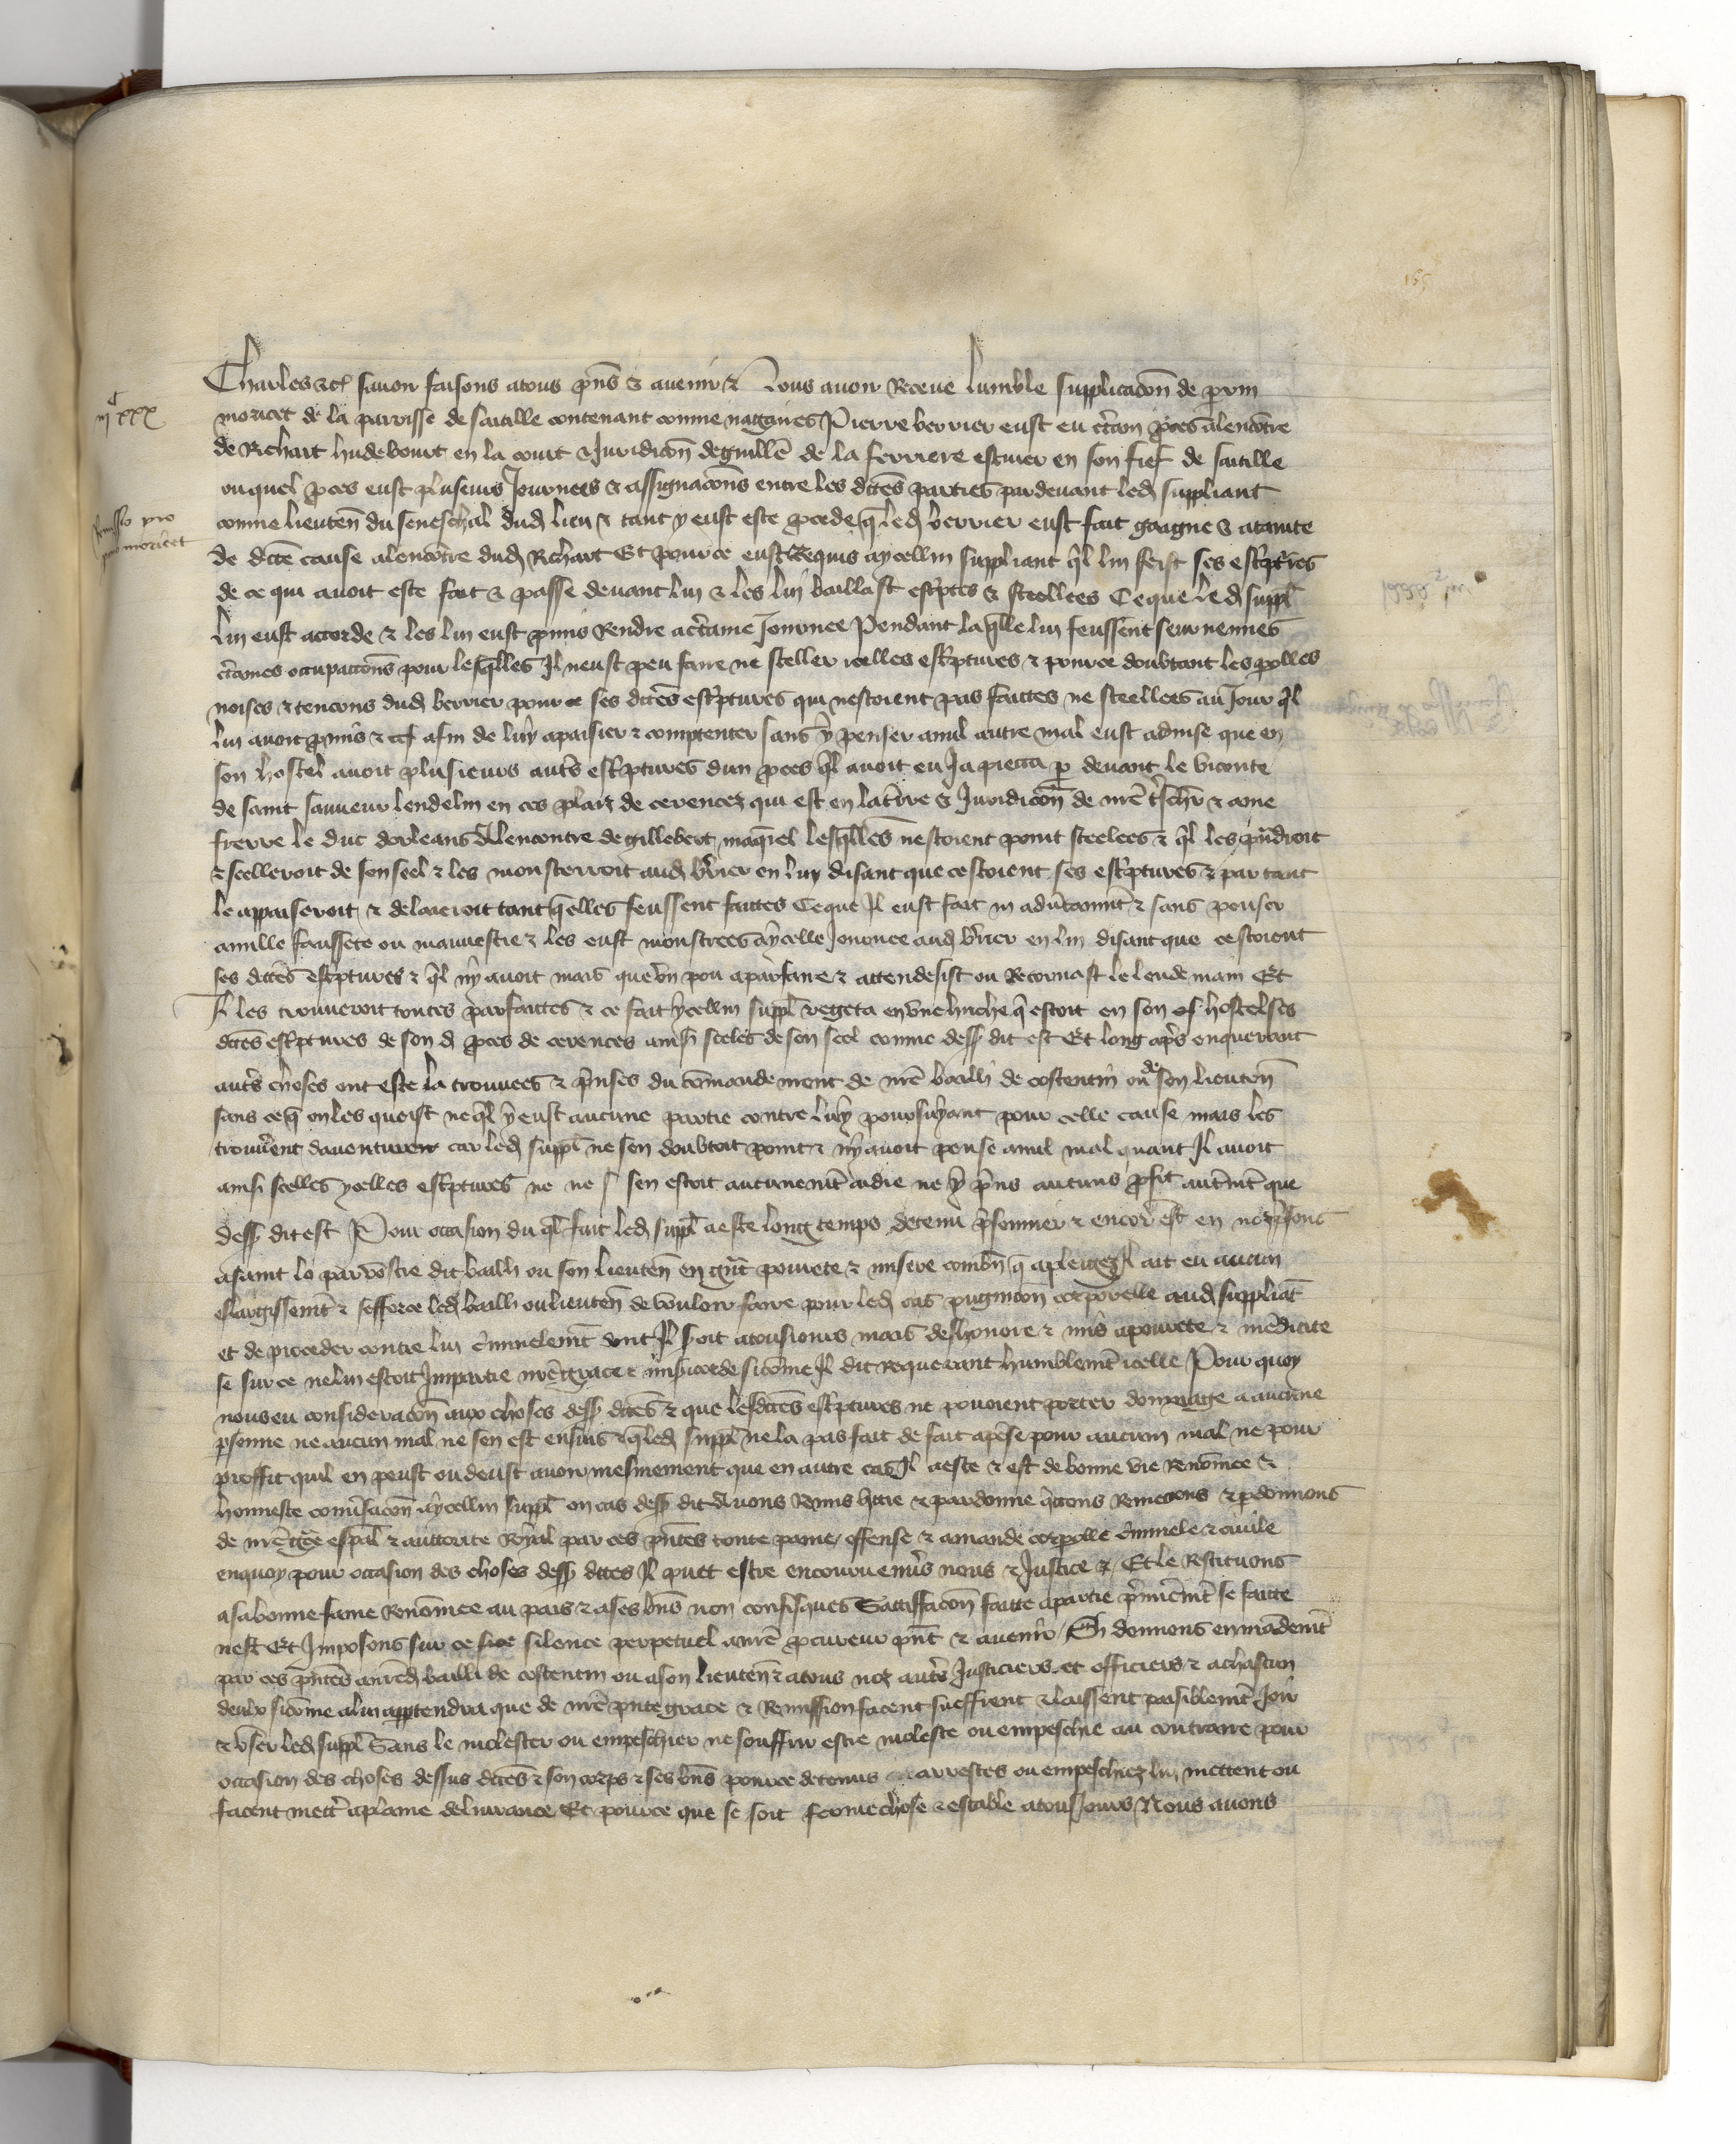 165
iijᶜ xxx
Remissio pro
prim moricet
Charles etc̃ savoir faisons a tous pñs & avenir & Nous avoir receue lumble supplicacion de prim
moricet de la parrisse de sartille contenant comme nagaires Pierre berrier eust eu cert̃ain proces alencõtre
de Richart hudebourt en la court & Juridicõn de guill̃e de la ferriere escuier en son fief de sartille
ouquel proces eust plusieurs Journees & assignacõns entre les dictẽs parties pardevant led suppliant
comme lieuten̄ du seneschal dud lieu & tant y eust este procede q̃ led berrier eust fait gaagne & atainte
de dictẽ cause alencõtre dud Richart Et pource eust requis a ycellui suppliant q̃l lui feist ses escr̃ptures
de ce qui avoit este fait & passe devant lui & les lui baillast escr̃ptes & seellees Ce que led suppl̃
lui eust accorde & les lui eust promis rendre a cert̃aine Journee Pendant laq̃lle lui feussent seurvenues
cert̃aines occupacions pour lesq̃lles Il neust peu faire ne seeller icelles escr̃ptures & pource doubtant les parolles
noises & tencons dud berrier pour ses dictẽs escr̃ptures qui nestoient pas faictes ne seellees au Jour q̃l
lui avoit promis & afin de luy apaisier & comptenter sans y penser a nul autre mal eust advise que en
son hostel avoit plusieurs autr̃s escr̃ptures dun proces q̃l avoit eu Ja pieca par devant le viconte
de saint sauveur lendelin en ces plaiz de cerences qui est en la terre & Juridicõn de nr̃e tr̃schier & ame
frere le duc dorleans Alencontre de gillebert maq̃rel lesq̃lles nestoient point seelees & q̃l les prendroit
& seelleroit de son seel & les monsterroit aud berrier en luy disant que cestoient ses escr̃ptures & par tant
le appaiseroit & delaieroit tant q̃ elles feussent faictes Ce que Il eust fait inadvertãment & sans penser
a nulle faussete ou mauvestie & les eust monstrees a ycelle Journee aud berrier en lui disant que cestoient
ses dictẽs escr̃ptures & q̃l ny avoit mais que un pou a parfaire & attendesist ou retornast le lendemain Et
Il les trouveroit toutes parfaictes & ce fait ycellui suppl̃ regeta en une huche q̃ estoit en son hostel ses
dictẽs escr̃ptures de son d proces de cerences ainsi seelees de son seel comme dess̃ dit est Et long apr̃s en querant
autr̃s choses ont este la trouvees & prinses du cõmandement de nr̃e bailli de costentin ou de son lieuten̄
sans ce q̃ on les queist ne q̃l y eust aucune partie contre luy poursuyvant pour celle cause mais les
trouverent daventure car led suppl̃ ne sen doubtoit point & ny avoit pense a nul mal quant Il avoit
ainsi seelles ycelles escr̃ptures ne ne sen estoit aucunemẽt aidie ne y prins aucuns profit autremẽt que
dess̃ dit est Pour occasion du q̃l fait led suppl̃ a este long temps detenu prisonnier & encor est en noz prisons
a saint lo par vostre dit bailli ou son lieuten̄ en grãt povrete & misere combien q̃ a pleiges Il ait eu aucun
eslargissemẽt & sefforce led bailli ou lieuten̄ de vouloir faire pour led cas pugnicion corporelle aud suppliãt
et de proceder contre lui criminelemẽt dont Il seroit a tousiours mais deshonore & mis a povrete & mẽdicite
se sur ce ne lui estoit Impartie nr̃e grace & misericorde sicõme Il dit requerant humblemẽt icelle Pour quoy
nous eu consideracõn aux choses dess̃ dictẽs & que lesdictẽs escr̃ptures ne povoient porter dommage a aucune
personne ne aucun mal ne sen est ensuis & q̃ led suppl̃ ne la pas fait de fait apense pour aucun mal ne pour
proffit quil en peust ou deust avoir mesmement que en autre cas Il a este & est de bonne vie renõmee &
honneste conversacõn a ycellui suppl̃ ou cas dess̃ dit Avons remis quittie & pardonne quictons remectons & pardonnons
de nr̃e grace espãl & auctorite royal par ces prẽsentes toute paine offense & amande corporelle criminele & civile
en quoy pour occasion des choses dess̃ dictes Il puet estre encouru envers nous & Justice & Et le restituons
a sa bonne fame renõmee au pais & a ses biens non confisques Satisfacõn faicte a partie premieremẽt se faicte
nest Et Imposons sur ce silence perpetuel a nr̃e procureur prẽsent & avenir Si donnons en mãdemẽt
par ces prẽsentes a nr̃ed bailli de costentin ou a son lieuten̄ & a tous noz autr̃s Justiciers et officiers & a chascun
deulx sicõme a lui appartendra que de nr̃e prẽsente grace & remission facent sueffrent & laissent paisiblemẽt Joir
& user led suppl̃ Sans le molester ou empeschier ne souffrir estre moleste ou empeschie au contraire pour
occasion des choses dessus dictẽs & son corps & ses biens pource detenus arrestes ou empeschiez lui mettent ou
facent mettre a plaine delivrance Et pource que se soit ferme chose & estable a tousJours Nous avons